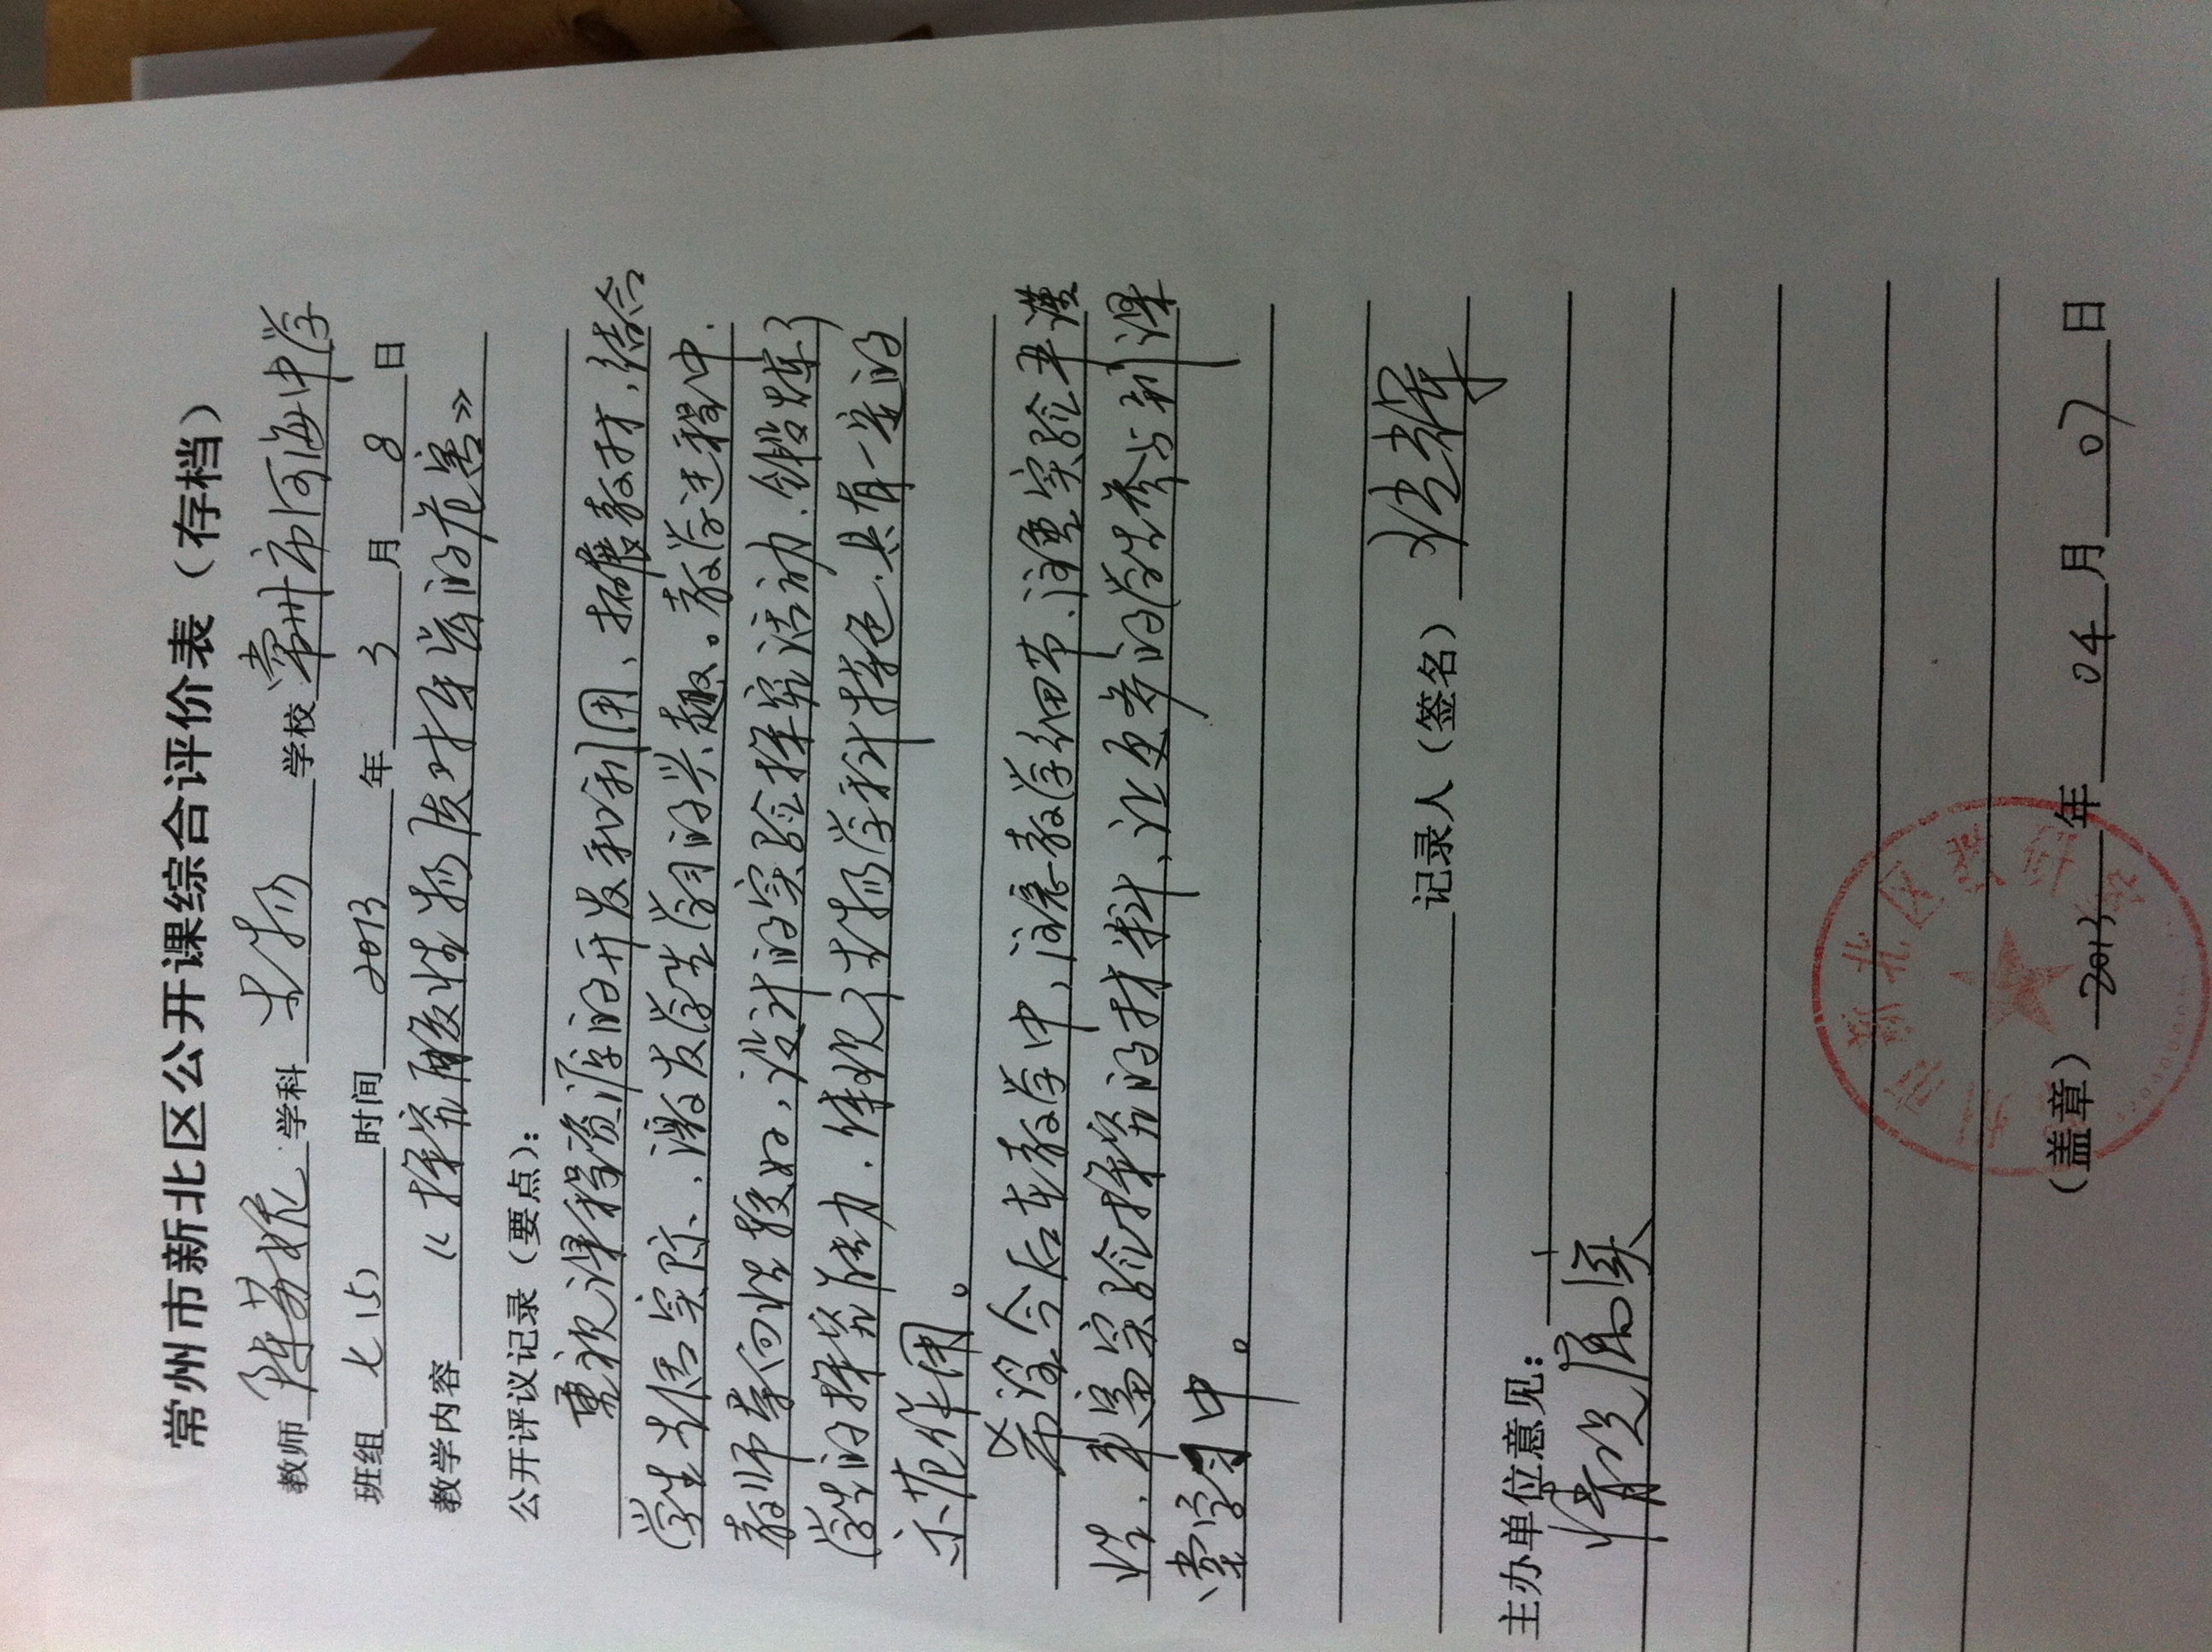 常州市新北区公开课综合评价表（存档）
教师 陈 学科 生物 学校 常州市河海中学
班组 七(5) 时间 2013 年 3 月 8 日
教学内容 《探究酸性物质对牙齿的危害》
公开评议记录（要点）：
重视课程资源的开发和利用、拓展教材，结合
学生生活实际、激发学生学习的兴趣。教学过程中.
教师导向性较好，设计的实验探究活动.锻炼了
学生的探究能力.体现了生物学科特色.具有一定的
示范作用。
希望今后在教学中，注意教学细节、注重实验严谨
性.丰富实验探究的材料，让更多的学生参与到课
堂学习中。
记录人（签名）
主办单位意见：
情况属实
新北区
（盖章） 2013 年 04 月 07 日